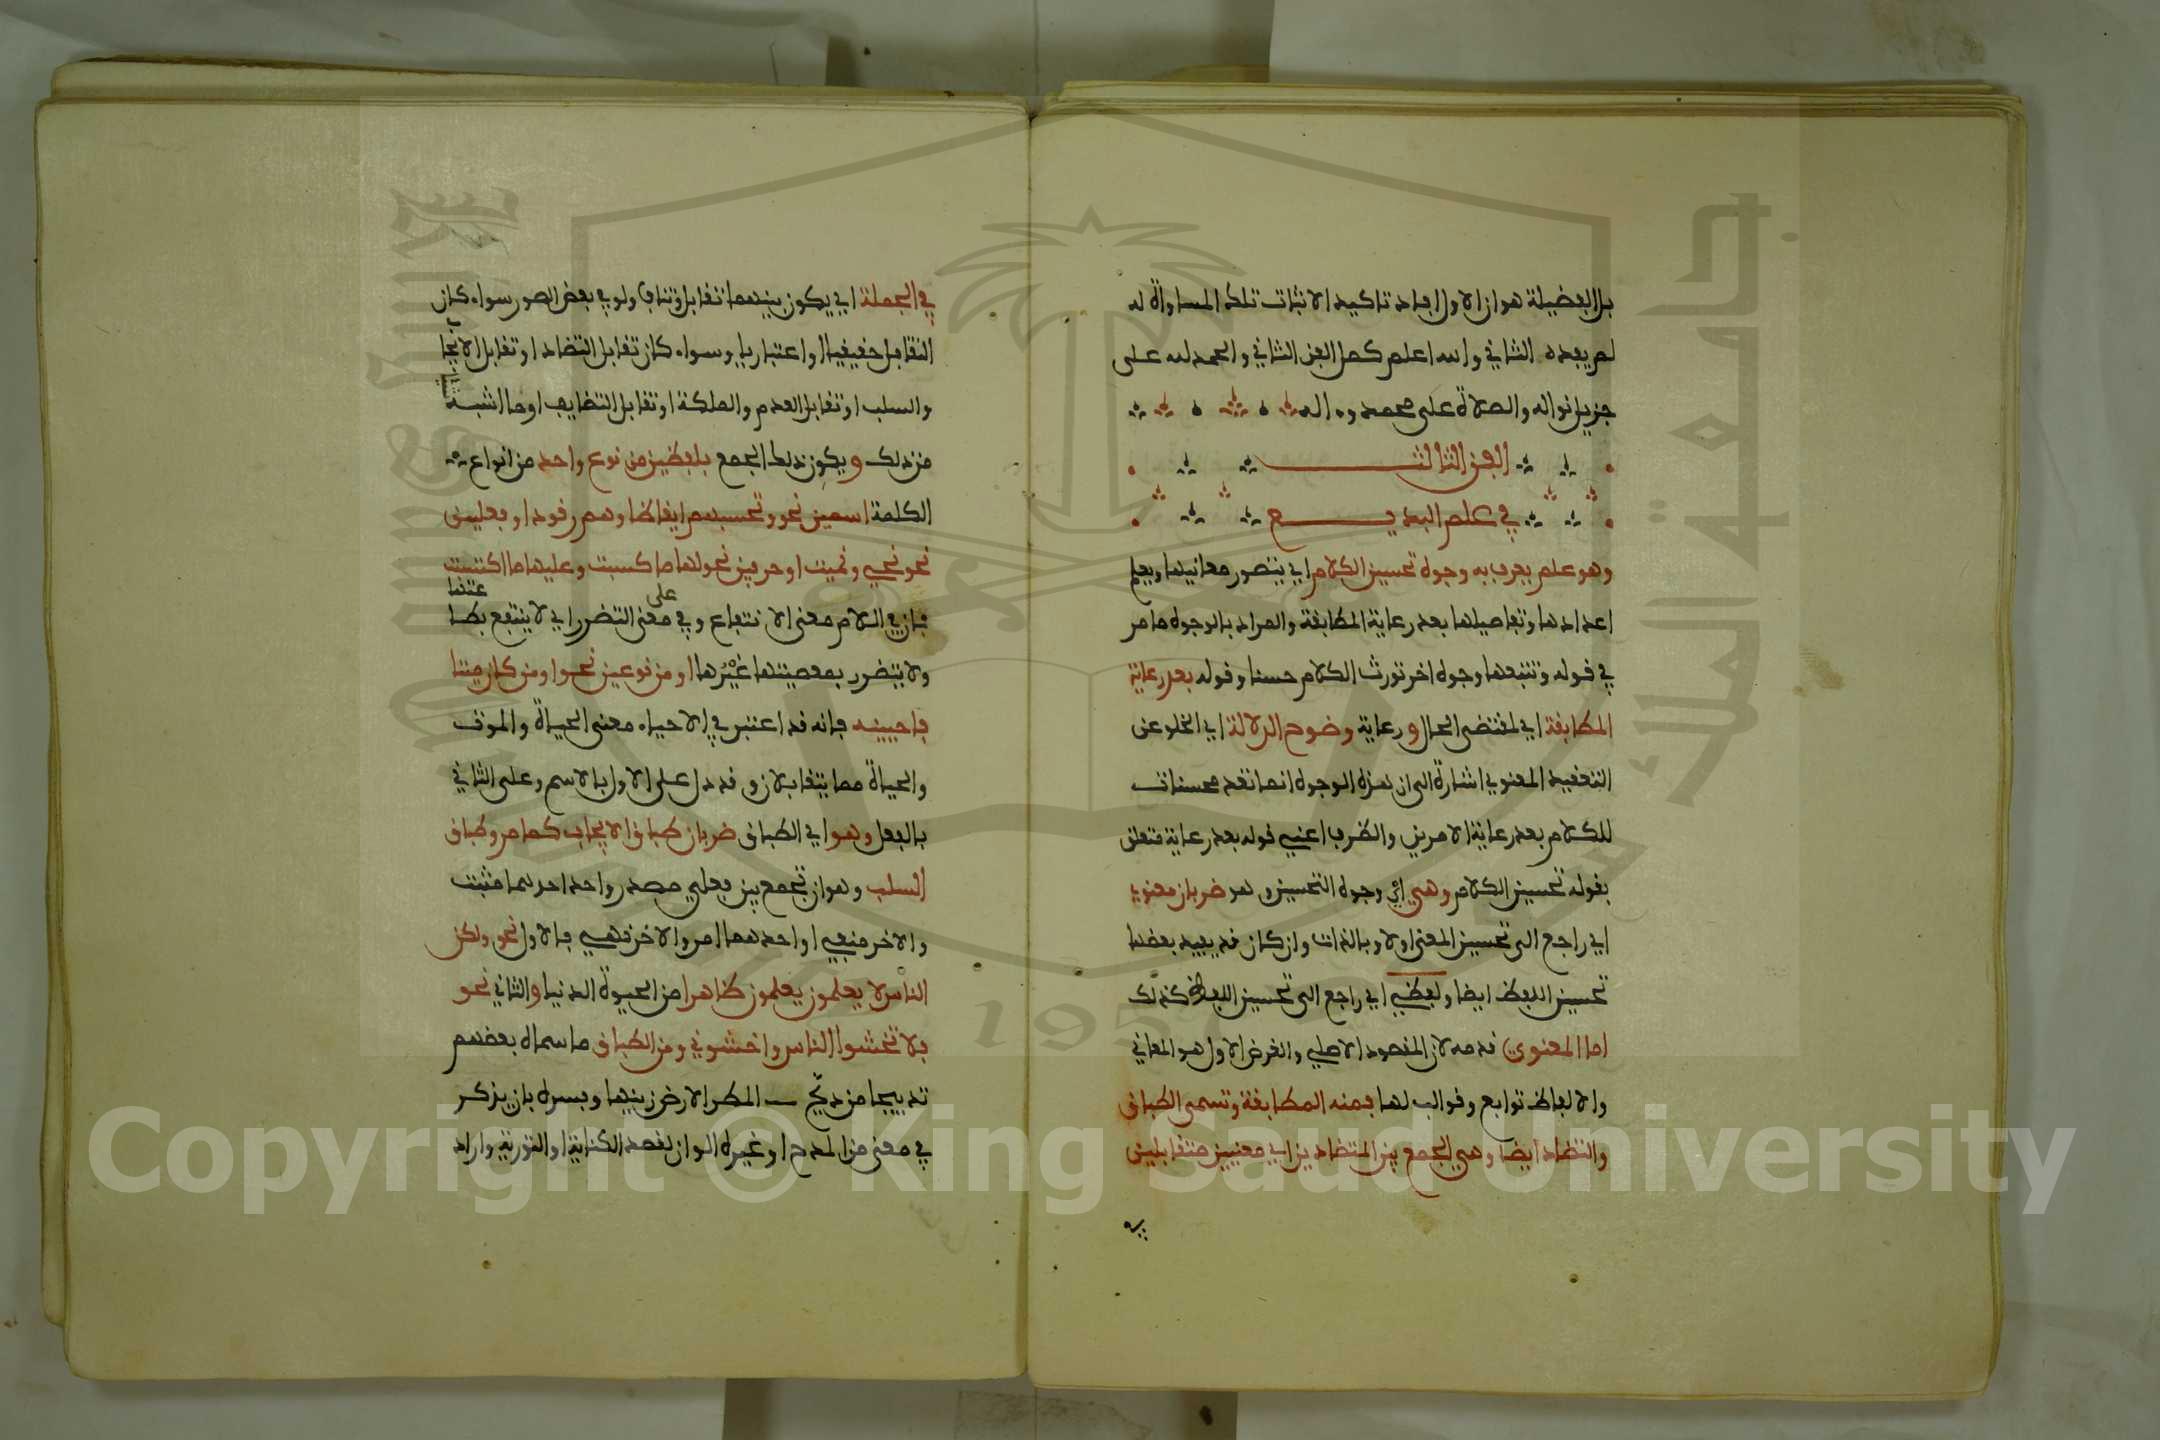 بل الفضيلة هو ان الاول افاد تاكيد الاثبات تلك المساواة له
لم يفده الثاني والله اعلم كمل الفن الثاني والحمد لله على
جزيل نواله والصلاة على محمد وءاله
الفن الثالث
في علم البديع
وهو علم يعرف به وجوه تحسين الكلام اي يتصور معانيها ويعلم
اعدادها وتفاصيلها بعد رعاية المطابقة والمراد بالوجوه ما مر
في قوله وتتبعها وجوه اخر تورث الكلام حسنا وقوله بعد رعاية
المطابقة اي لمقتضى الحال ورعاية وضوح الدلالة اي الخلو عن
التعقيد المعنوي اشارة الى ان هذه الوجوه انما تعد محسنات
للكلام بعد رعاية الامرين والظرف اعني قوله بعد رعاية متعلق
بقوله تحسين الكلام وهي اي وجوه التحسين وهو ضربان معنوي
اي راجع الى تحسين المعنى اولا وبالذات وان كان قد يفيد بعضها
تحسين اللفظ ايضا ولفظي اي راجع الى تحسين اللفظ كذلك
اما المعنوي قدمه لان المقصود الاصلي والغرض الاول هو المعاني
والالفاظ توابع وقوالب لها فمنه المطابقة وتسمى الطباق
والتضاد ايضا وهي الجمع بين المتضادين اي معنيين متقابلين
في
في الجملة اي يكون بينهما تقابل وتناف ولو في بعض الصور سواء كان
التقابل حقيقيا او اعتباريا وسواء كان تقابل التضاد او تقابل الايجاب
والسلب او تقابل العدم والملكة او تقابل التضايف او ما اشبه
من ذلك ويكون ذلك الجمع بلفظين من نوع واحد من انواع
الكلمة اسمين نحو وتحسبهم ايقاظا وهم رقود او فعلين
نحو يحيي ويميت او حرفين نحو لها ما كسبت وعليها ما اكتسبت
فان في اللام معنى الانتفاع وفي على معنى التضرر اي لا ينتفع بطاعتها
ولا يتضرر بمعصيتها غيرها او من نوعين نحو او من كان ميتا
فاحييناه فانه قد اعتبر في الاحياء معنى الحياة والموت
والحياة مما يتقابلان وقد دل على الاول بالاسم وعلى الثاني
بالفعل وهو اي الطباق ضربان طباق الايجاب كما مر وطباق
السلب وهو ان تجمع بين فعلي مصدر واحد احدهما مثبت
والاخر منفي او احدهما امر والاخر نهي فالاول نحو ولكن
الناس لا يعلمون يعلمون ظاهرا من الحيوة الدنيا والثاني نحو
فلا تخشوا الناس واخشوني ومن الطباق ما سماه بعضهم
تدبيجا من دبج المطر الارض زينها وفسره بان يذكر
في معنى من المدح او غيره الوان لقصد الكناية او التورية واراد